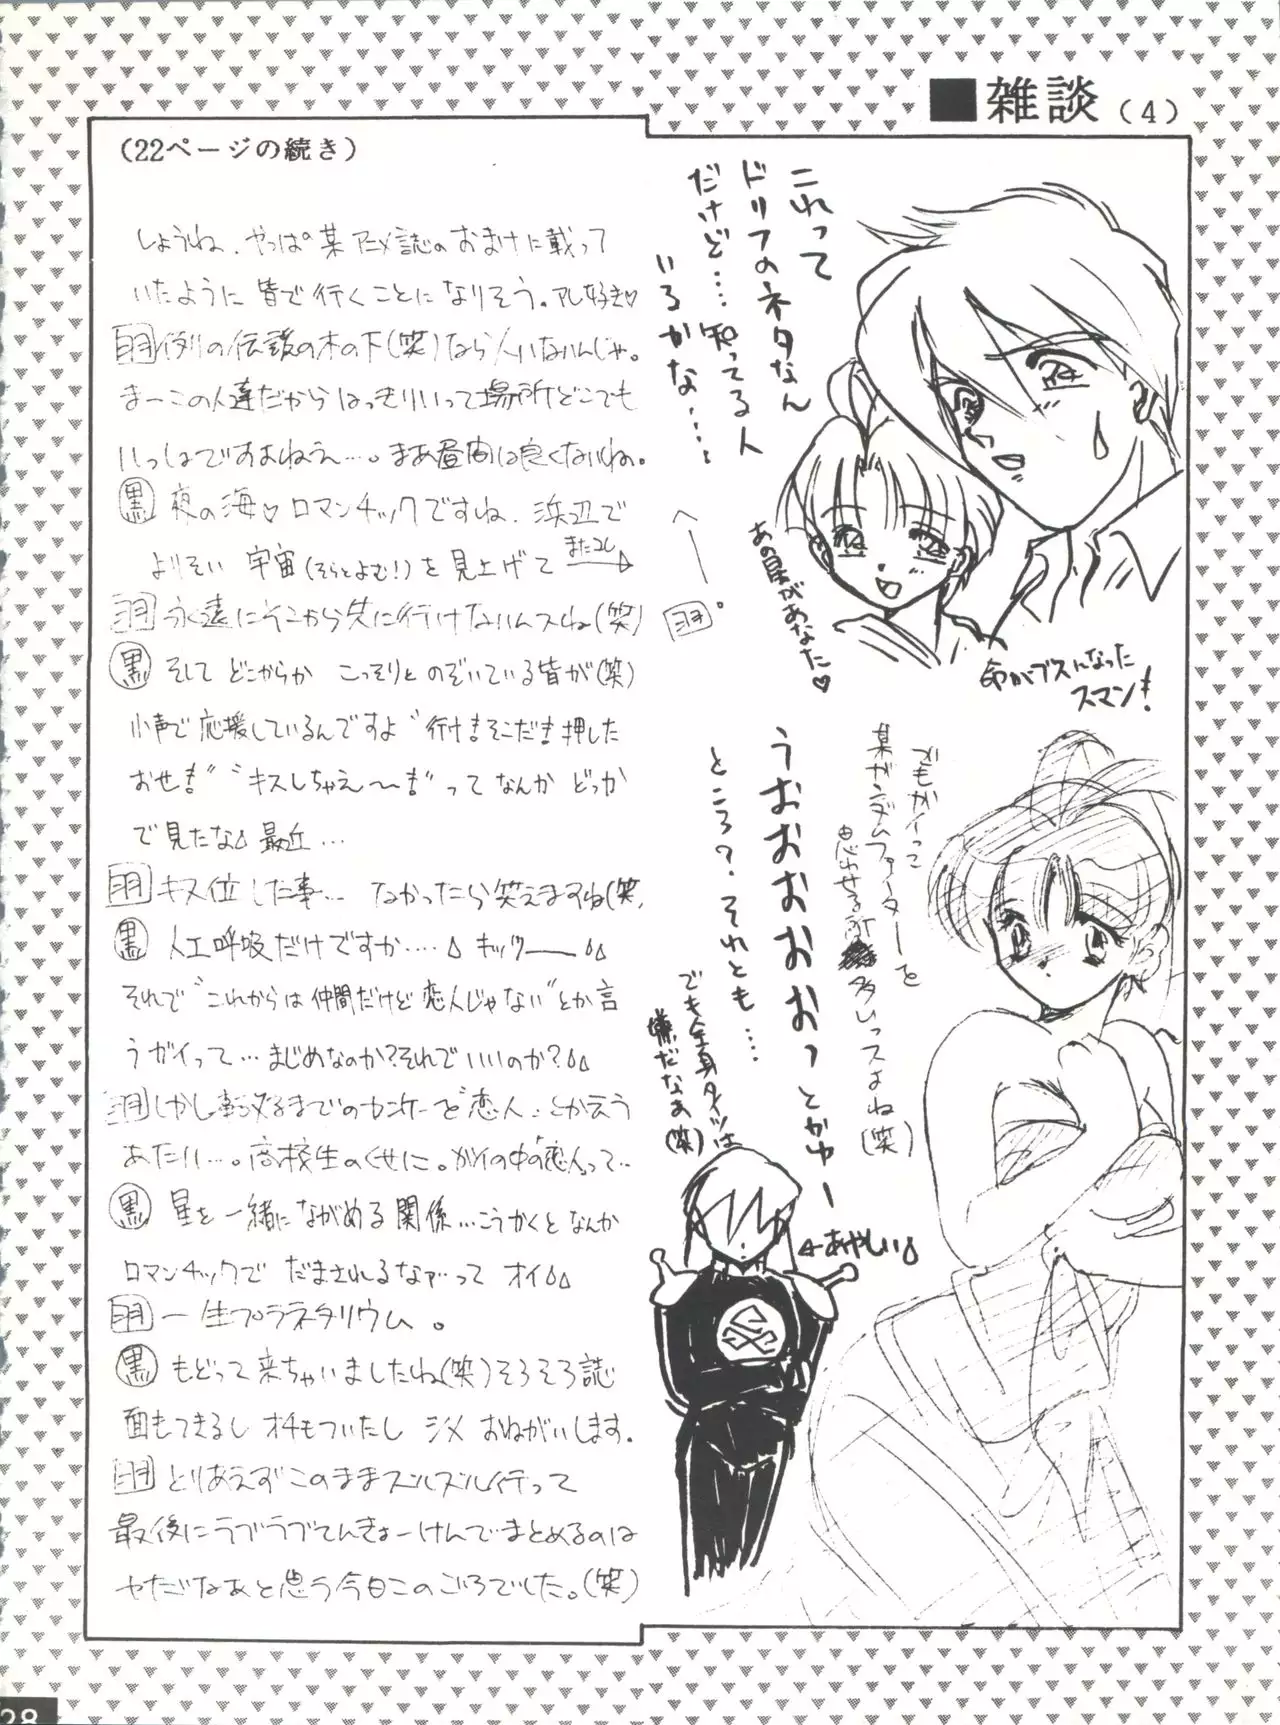 ■雑談（4）
（22ページの続き）
しょうね、やっぱ某アニメ誌のおまけに載って
いたように皆で行くことになりそう。アレ好き♡
羽 例の伝説の木の下(笑)ならいいなんじゃ。
まーこの人達だからはっきりいって場所どこでも
いっしょですよねえ…。まあ昼間は良くないね。
黒 夜の海♡ロマンチックですね、浜辺で
よりそい 宇宙(そらとよむ!)を見上げて
またコレ
羽 永遠にそこから先に行けないんスね(笑)
黒 そして どこからか こっそりと のぞいている皆が(笑)
小声で応援しているんですよ“行け!そこだ!押した
おせ!”“キスしちゃえ〜!”って なんか どっか
で見たな 最近…
羽 キス位した事… なかったら笑えますね(笑)
黒 人工呼吸だけですか…. キッツー
それで“これからは仲間だけど恋人じゃない”とか言
うガイって…まじめなのか?それでいいのか?
羽 しかし するまでのカンケーを“恋人”とか云う
あたり…。高校生のくせに。ガイの中の“恋人”って…
黒 星を一緒にながめる関係…こうかくと なんか
ロマンチックで だまされるなァ…って オイ
羽 一生プラネタリウム。
黒 もどって来ちゃいましたね(笑)そろそろ誌
面もつきるし オチもついたし シメ おねがいします.
羽 とりあえずこのままズルズル行って
最後にラブラブてんきょーけんでまとめるのは
やだなあと思う今日このごろでした。(笑)
これって
ドリフのネタなん
だけど…. 知ってる人
いるかな……
へ——
羽
あの星があなた♡
命がブスになった
スマン!
でもガイって
某ガンダムファイターを
思わせる所多いっスよね(笑)
うおおおおおっとかゆー
ところ?それとも…
でも全身タイツは
嫌だなあ(笑)
←あやしい
28